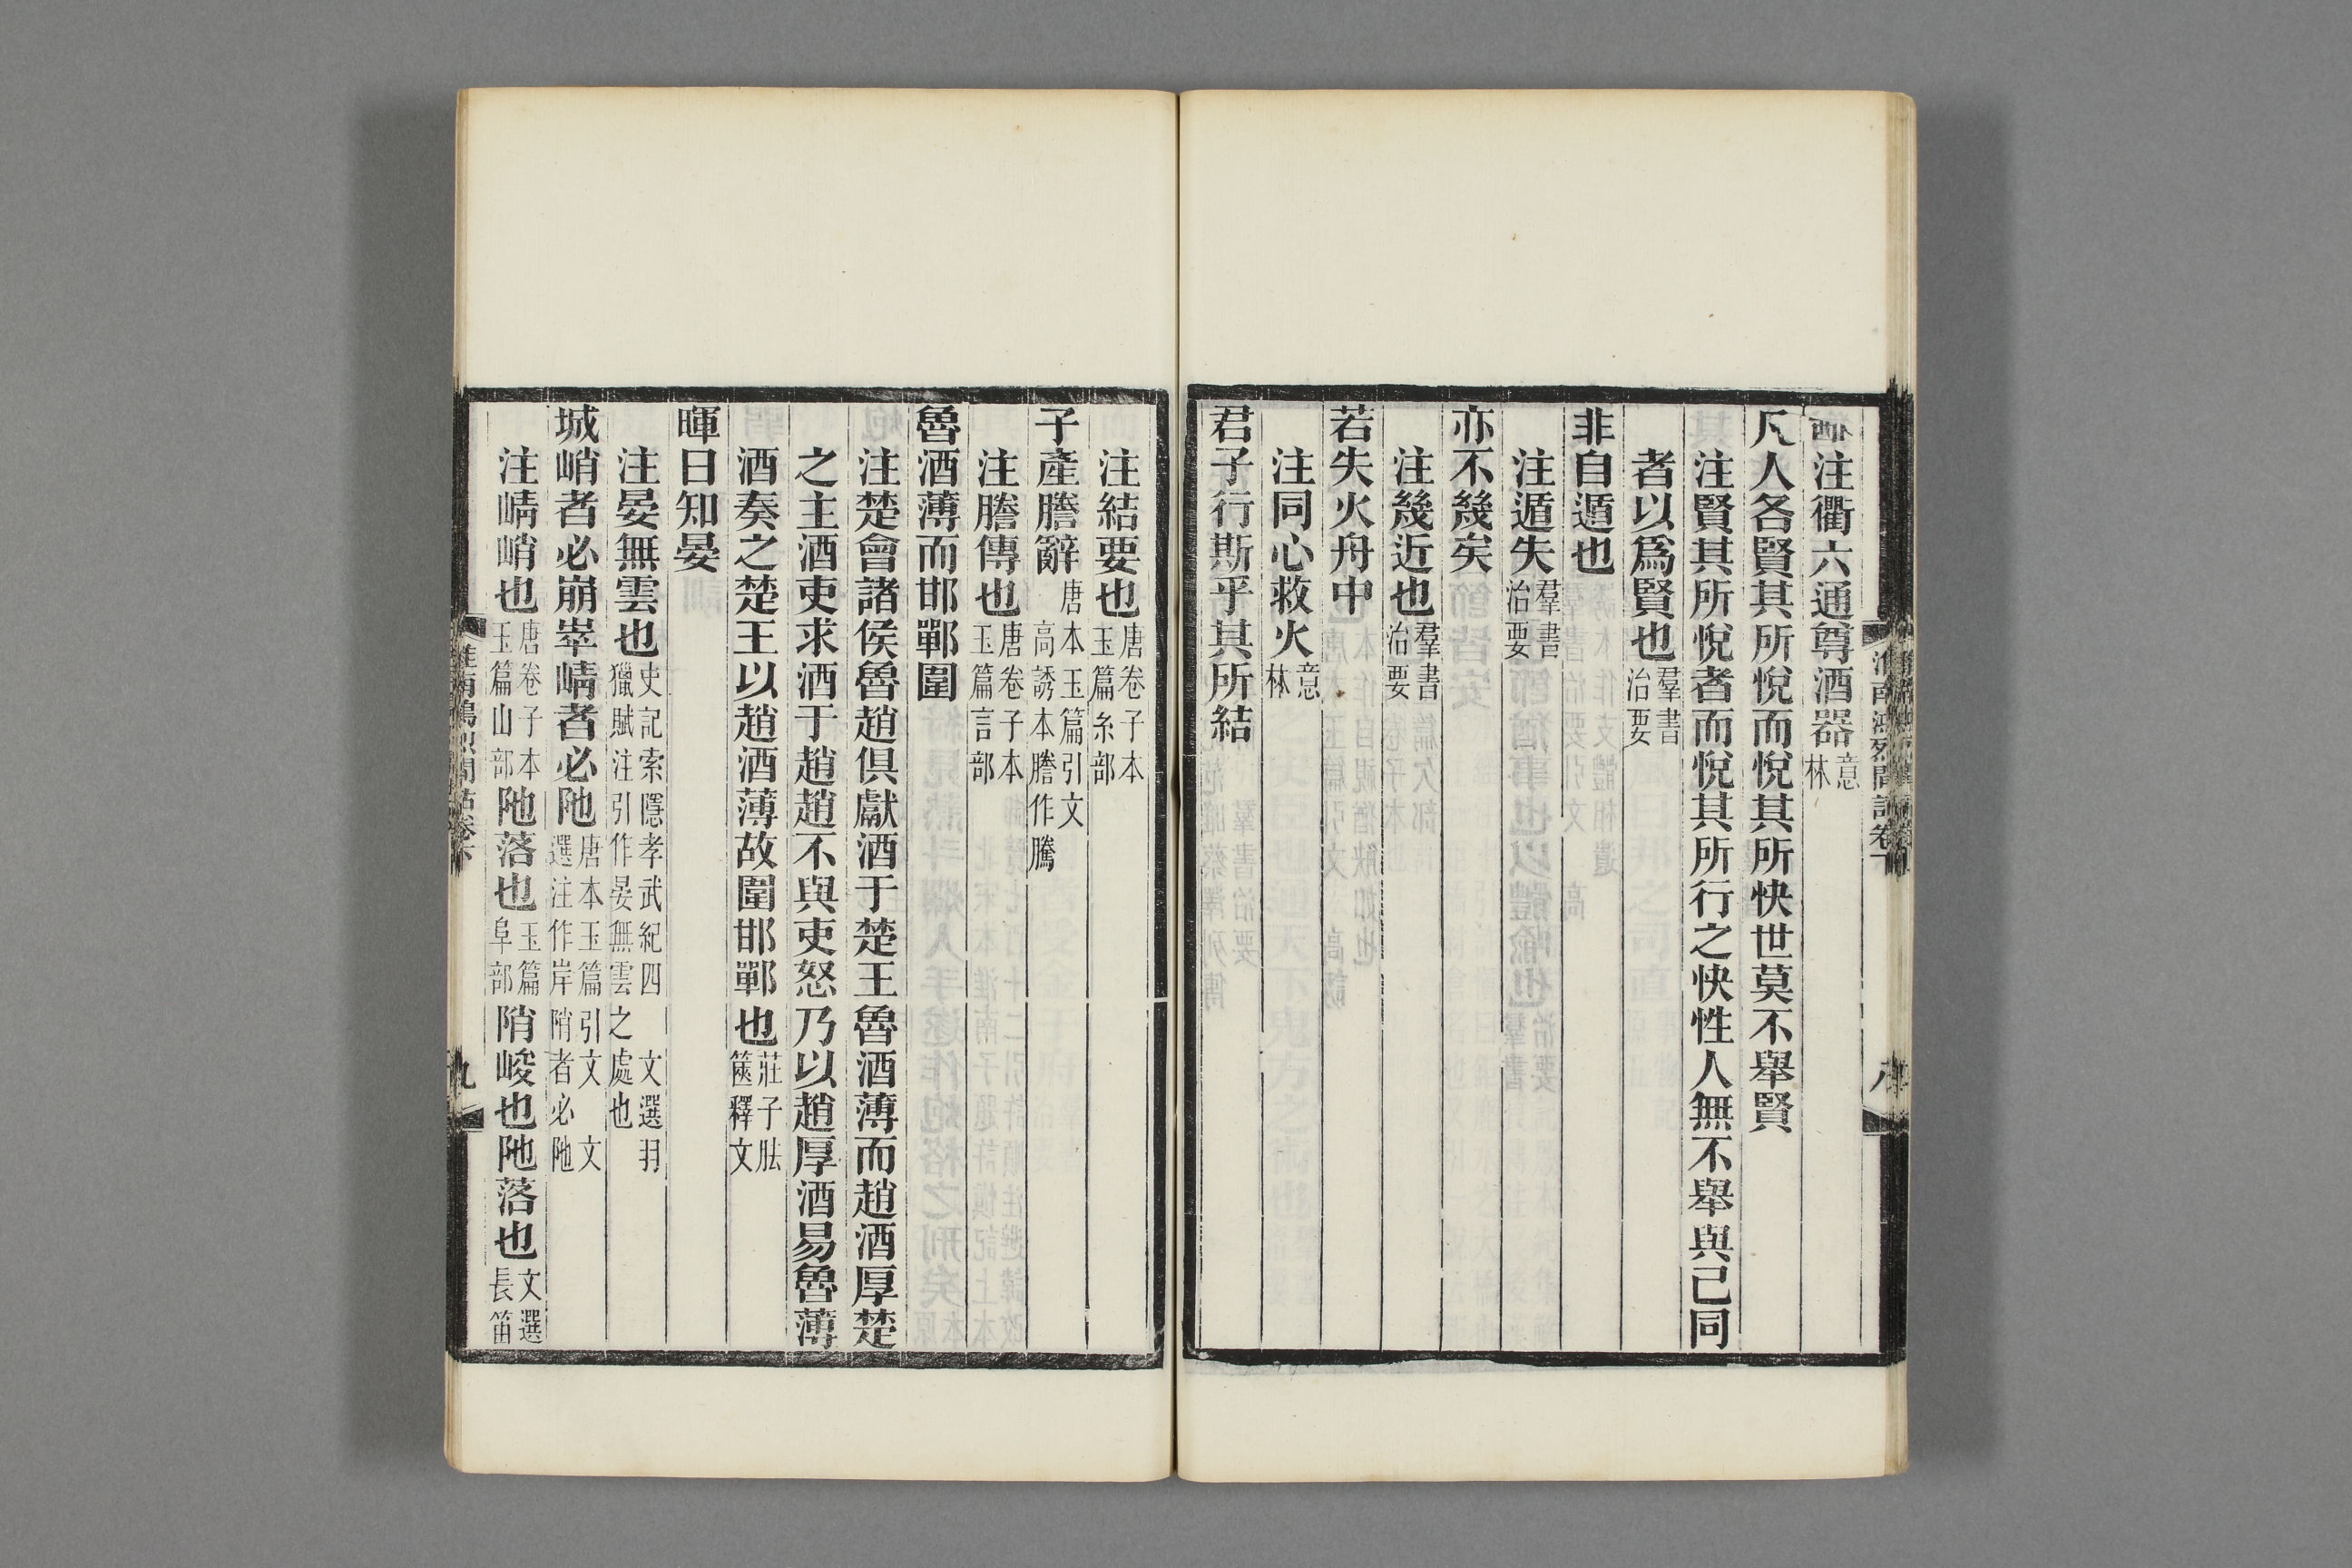 注衢六通尊酒器意林
凡人各賢其所悅而悅其所快世莫不舉賢
注賢其所悅者而悅其所行之快性人無不舉與己同
者以爲賢也羣書治要
非自遁也
注遁失羣書治要
亦不幾矣
注幾近也羣書治要
若失火舟中
注同心救火意林
君子行斯乎其所結
注結要也唐卷子本玉篇糸部
子產謄辭唐本玉篇引文高誘本謄作騰
注謄傳也唐卷子本玉篇言部
魯酒薄而邯鄲圍
注楚會諸侯魯趙俱獻酒于楚王魯酒薄而趙酒厚楚
之主酒吏求酒于趙趙不與吏怒乃以趙厚酒易魯薄
酒奏之楚王以趙酒薄故圍邯鄲也莊子胠篋釋文
暉日知晏
注晏無雲也史記索隱孝武紀四 文選羽獵賦注引作晏無雲之處也
城峭者必崩崋崝者必阤唐本玉篇引文 文選注作岸陗者必阤
注崝峭也唐卷子本玉篇山部阤落也玉篇阜部陗峻也阤落也文選長笛
淮南鴻烈閒詁卷下
八
淮南鴻烈閒詁卷下
九